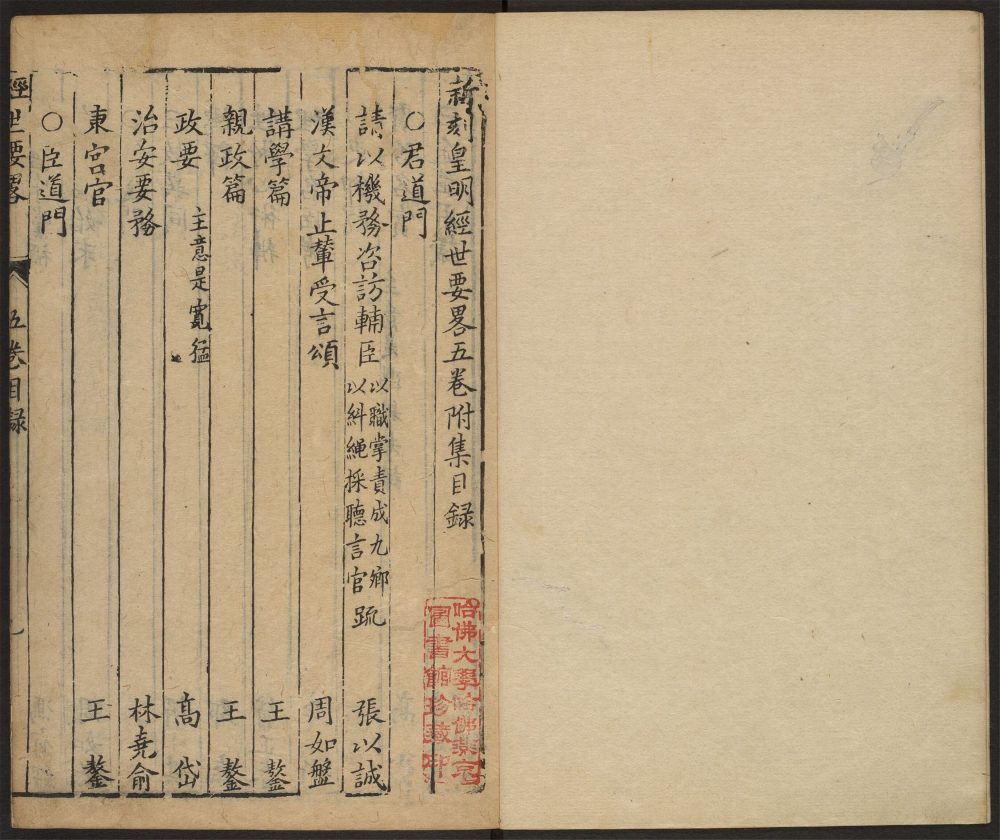 新刻皇明經世要畧五卷附集目錄
○君道門
請以機務咨訪輔臣以職掌責成九鄉以糾繩採聽言官疏 張以誠
漢文帝止輦受言頌 周如盤
講學篇 王鏊
親政篇 王鏊
政要 主意是寬猛 高岱
治安要務 林堯俞
東宮官 王鏊
○臣道門
經世要畧 五卷目錄
哈佛大學哈佛燕京
圖書館珍藏印